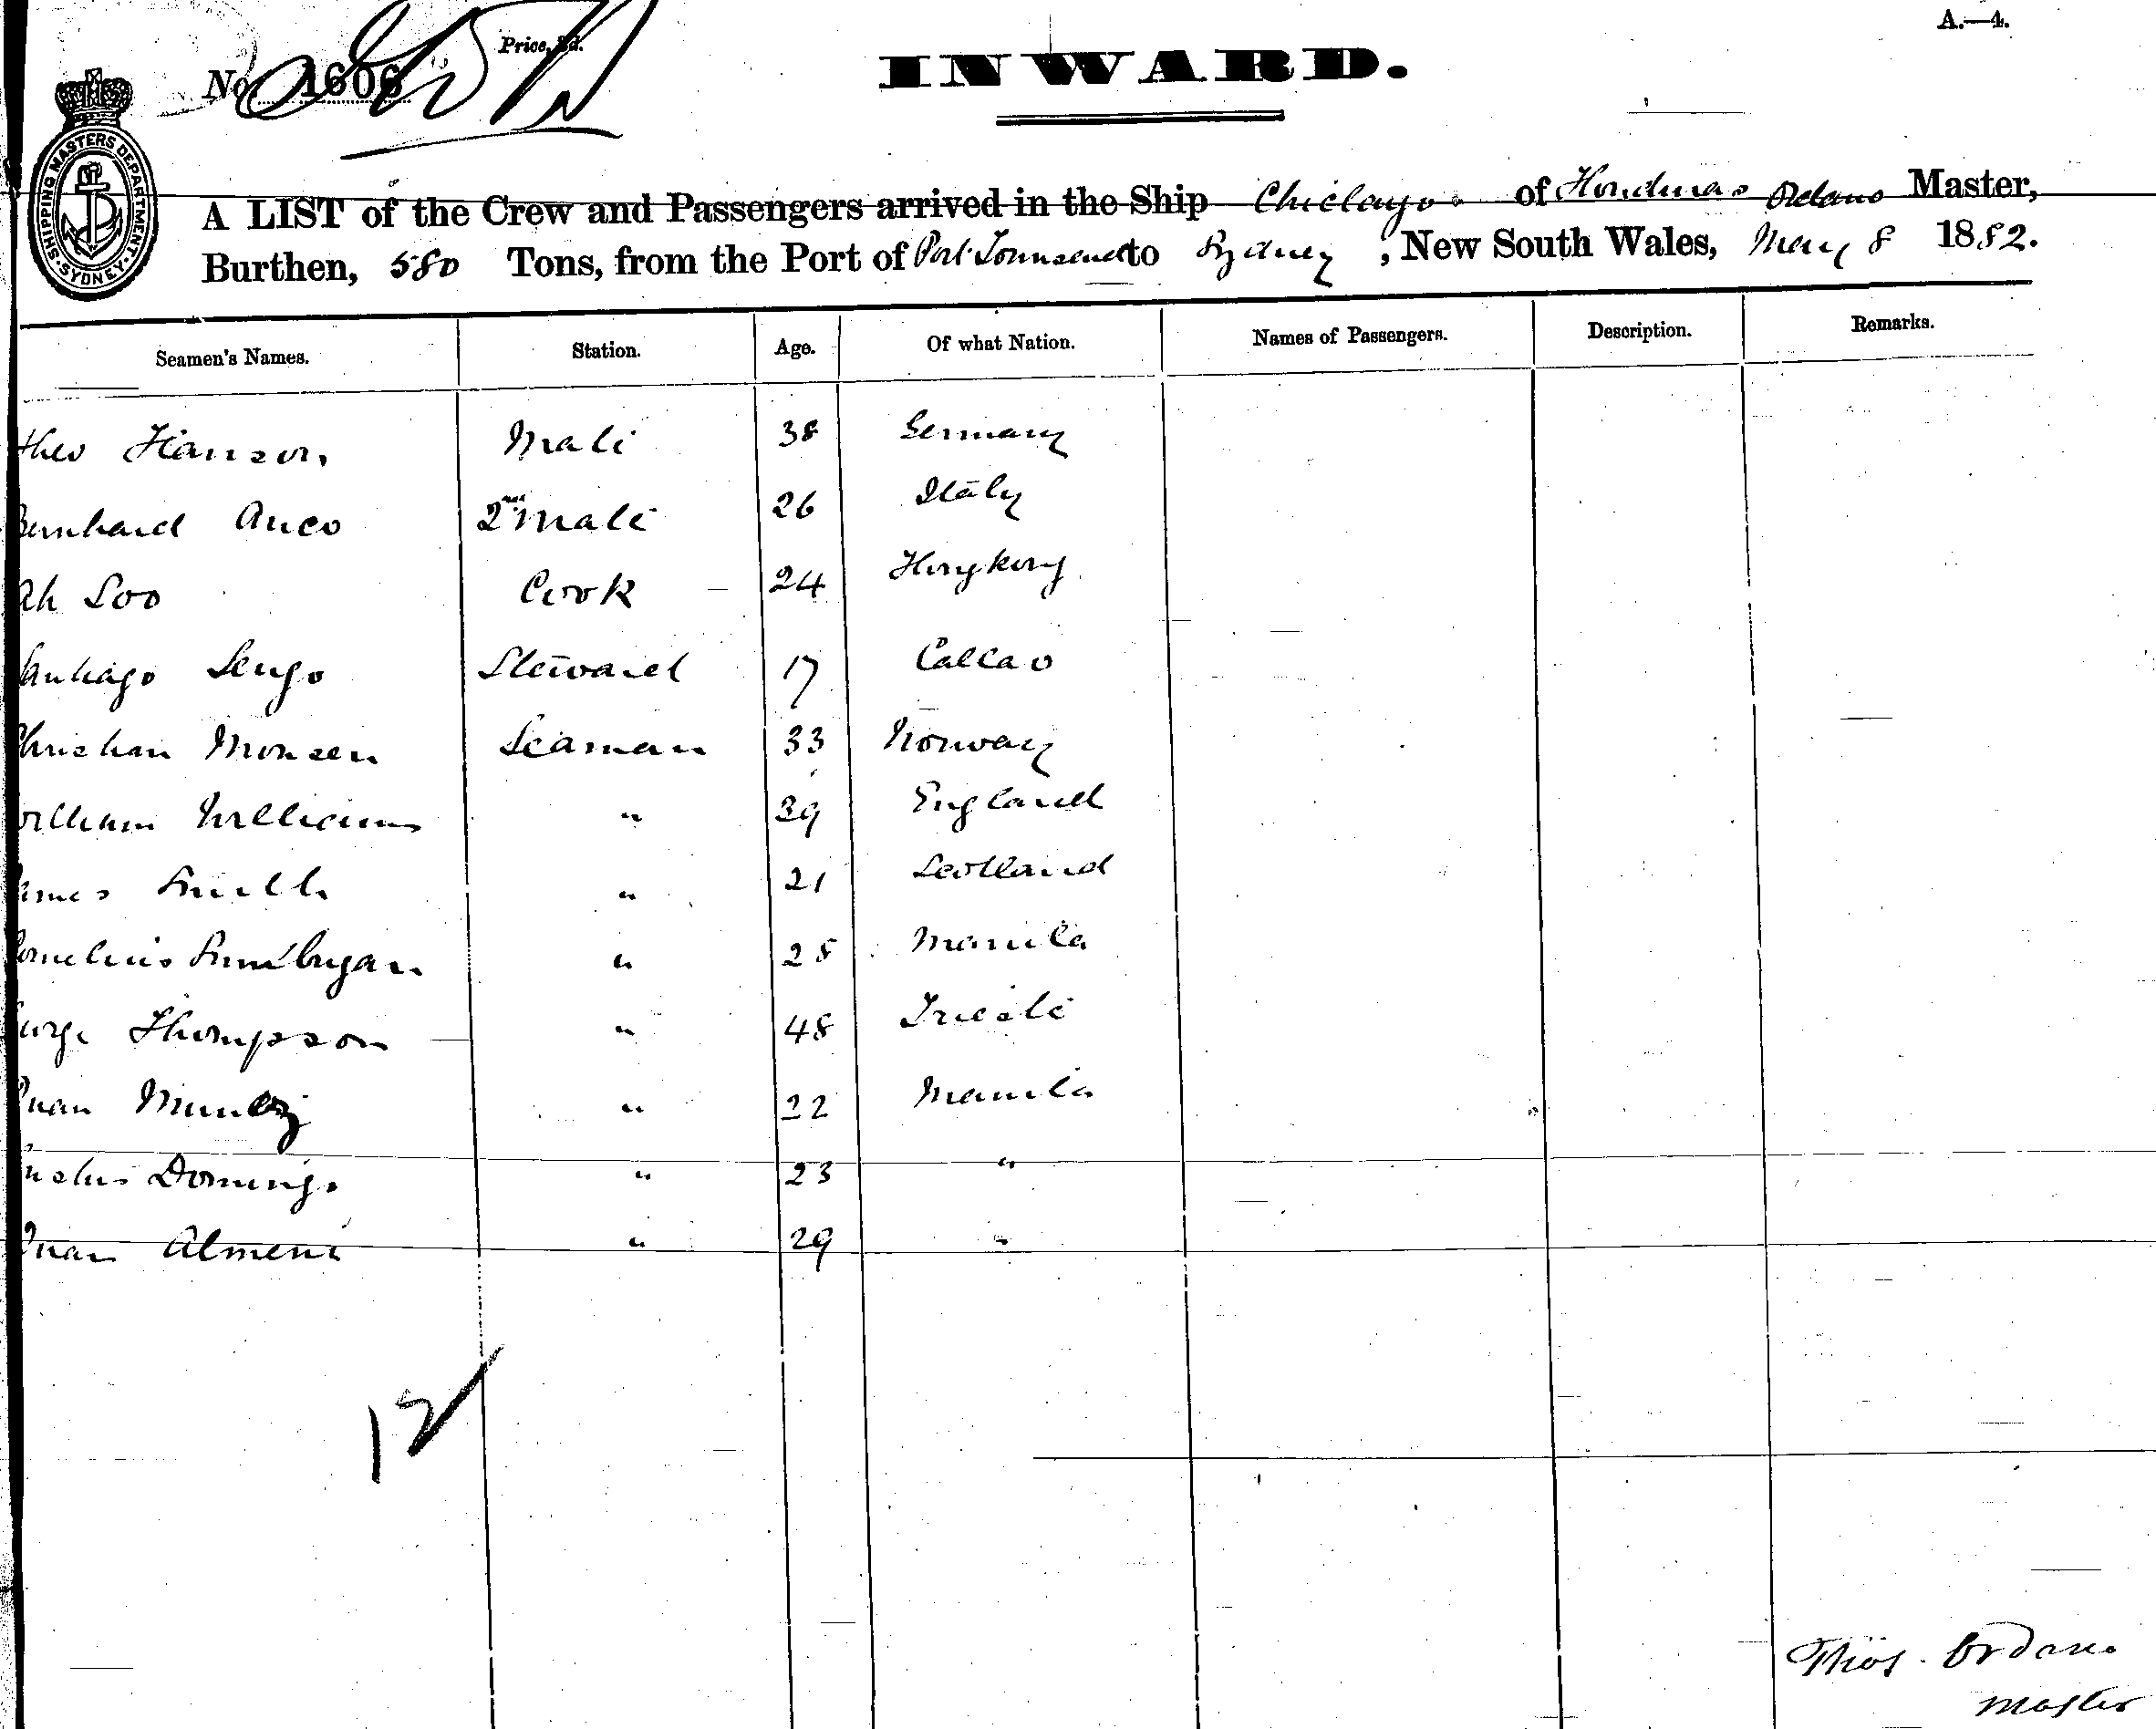 A.—4.
Price, 3d.
No. 1606
INWARD.
SHIPPING MASTERS DEPARTMENT. SYDNEY.
A LIST of the Crew and Passengers arrived in the Ship Chiclayo of Honduras Master,
Burthen, 580 Tons, from the Port of Port Townsend to Sydney, New South Wales, May 8 1882.
Seamen's Names. Station. Age. Of what Nation. Names of Passengers. Description. Remarks.
Theo Hanson Mate 38 Germany
Bernhard Auco 2nd Mate 26 Italy
Ah Soo Cook 24 Hongkong
Santiago Steward 17 Callao
Christian Monsen Seaman 33 Norway
William Williams " 39 England
James Smith " 21 Scotland
Cornelius " 28 Manila
George Thompson " 48 Trieste
Juan " 22 Manila
Domingo " 23 "
Juan " 29 "
12
Thos. Ordano
Master